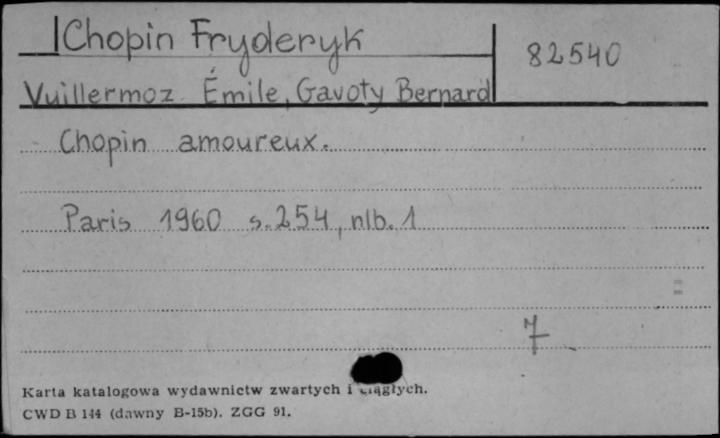 Chopin Fryderyk
82540
Vuillermoz Émile, Gavoty Bernard
Chopin amoureux.
Paris 1960 s. 254, nlb. 1
7
Karta katalogowa wydawnictw zwartych i ciągłych.
CWD B 144 (dawny B-15b). ZGG 91.